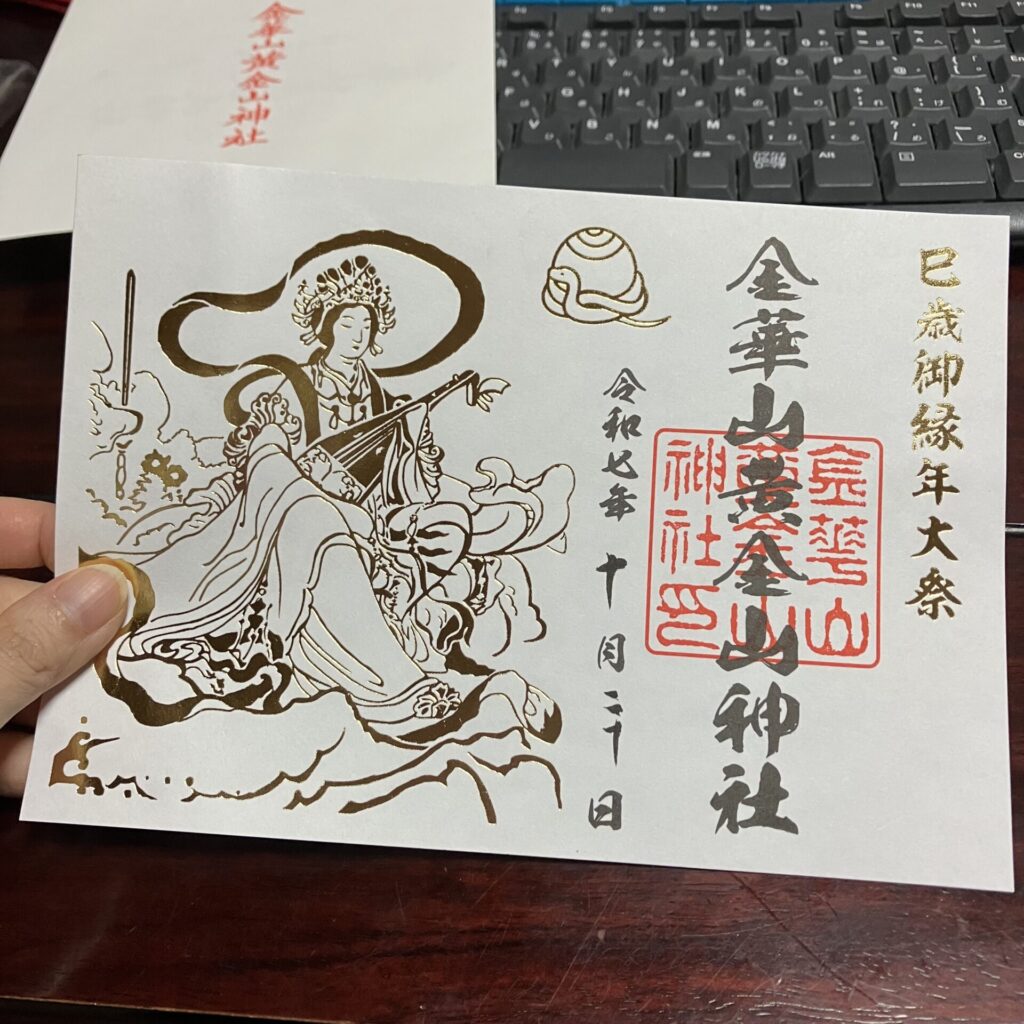 金華山黄金山神社
巳歳御縁年大祭
金華山黄金山神社
金華山
黄金山
神社印
令和七年 十月二十日
Alt